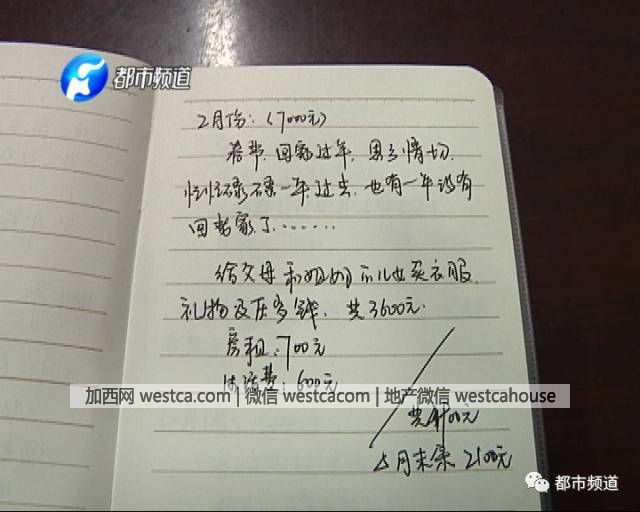 都市频道
2月份：（7000元）
回家过年，情切，
忙忙碌碌一年过去，也有一年没有
回老家了……
给父母和姐姐家儿女买衣服、
礼物及压岁钱，共3600元.
房租：700元
生活费：600元
加西网 westca.com | 微信 westcacom | 地产微信 westcahouse
共4900元
月末余 2100元
都市频道